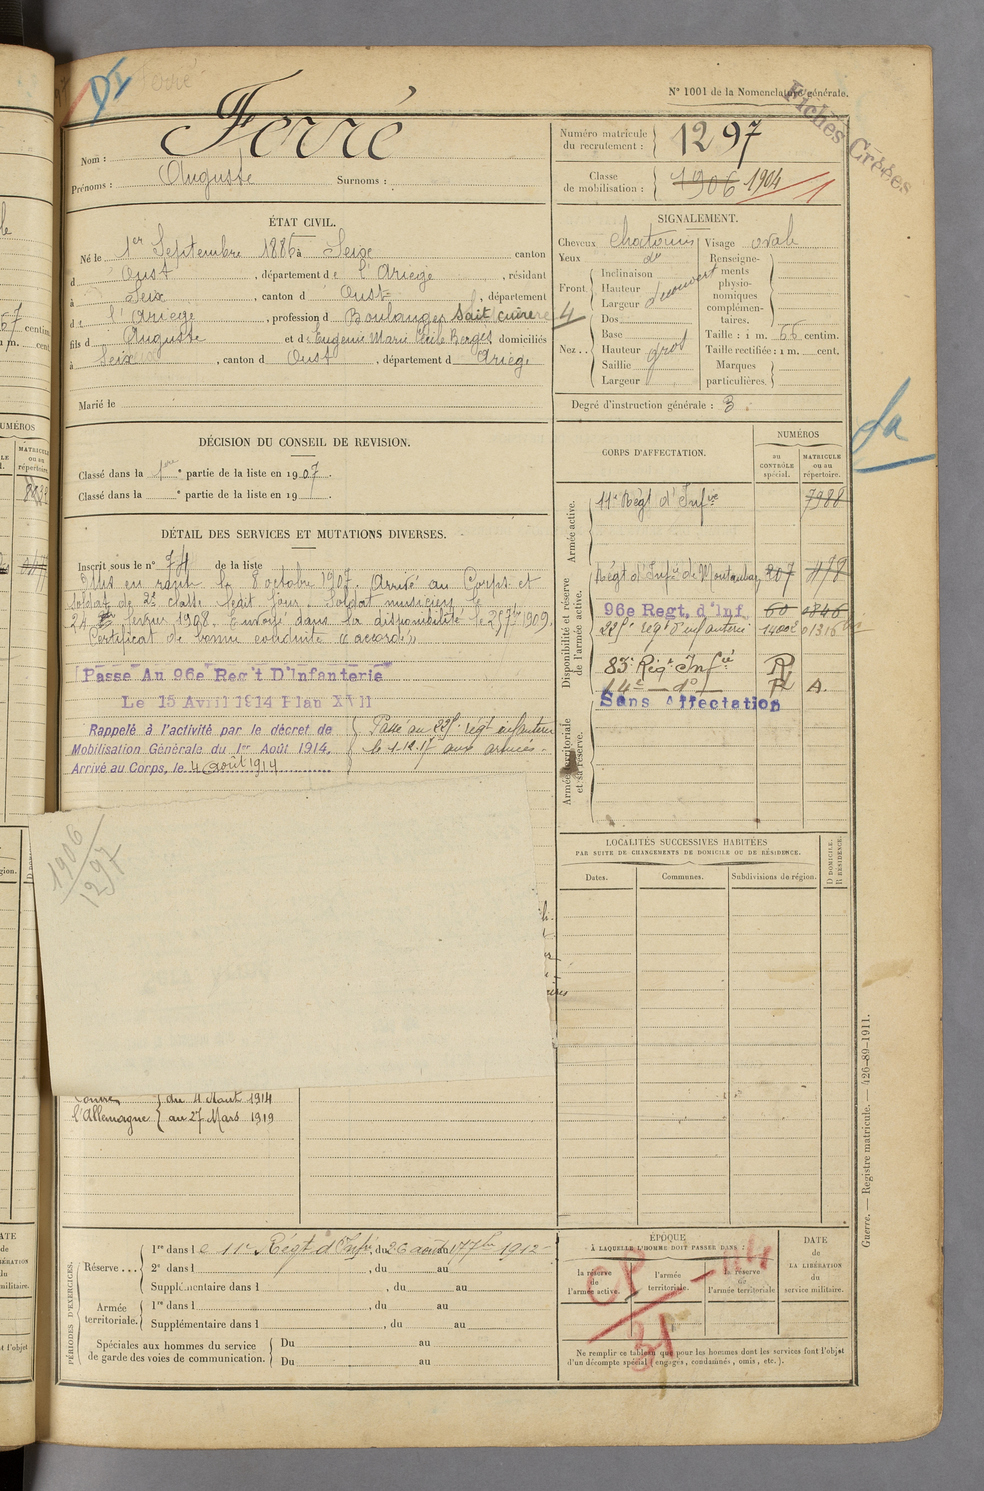 N° 1001 de la Nomenclature générale.
Fiches Créées
Ferré
Nom :
Prénoms : Auguste Surnoms :
Numéro matricule du recrutement : 1297
Classe de mobilisation : 1906 1904
ÉTAT CIVIL.
Né le 1er Septembre 1886 à Seix canton
d Oust, département de l'Ariège, résidant
à Seix, canton d Oust, département
de l'Ariège, profession d Boulanger Sait cuire
fils d Auguste et de Eugénie Marie Cécile Bergès domiciliés
Seix, canton d Oust, département d Ariège
Marié le
SIGNALEMENT.
Cheveux chatains Visage ovale
Yeux do
Front Inclinaison
Hauteur découvert
Largeur
Nez.. Dos
Base
Hauteur gros
Saillie
Largeur
Renseignements physionomiques complémentaires.
Taille : 1 m. 66 centim.
Taille rectifiée : 1 m. cent.
Marques particulières.
Degré d'instruction générale : 3
DÉCISION DU CONSEIL DE REVISION.
Classé dans la 1ère partie de la liste en 1907.
Classé dans la e partie de la liste en 19
DÉTAIL DES SERVICES ET MUTATIONS DIVERSES.
Inscrit sous le n° 74 de la liste
Mis en route le 8 octobre 1907. Arrivé au Corps et
soldat de 2e classe ledit jour. Soldat musicien le
24 février 1908. Envoyé dans la disponibilité le 25 7bre 1909.
Certificat de bonne conduite "accordé".
Passé Au 96e Reg't D'Infanterie
Le 15 Avril 1914 Plan XVII
Rappelé à l'activité par le décret de
Mobilisation Générale du 1er Août 1914.
Arrivé au Corps, le 4 août 1914
Passé au 22e régt infanterie
le 1.12.17 aux armées.
1906
1297
Contre
l'Allemagne
du 4 Août 1914
au 27 Mars 1919
CORPS D'AFFECTATION.
NUMÉROS
au CONTRÔLE spécial.
MATRICULE ou au répertoire.
Armée active.
11e Régt d'Infie 7988
Disponibilité et réserve de l'armée active.
Régt d'Infie de Montauban 207 1178
96e Regt, d'Inf 60 0846
régt d'infanterie 01316 bis
83e Régt Infie R
14e do R A.
Sans Affectation
Armée territoriale et sa réserve.
LOCALITÉS SUCCESSIVES HABITÉES
PAR SUITE DE CHANGEMENTS DE DOMICILE OU DE RÉSIDENCE.
Dates. Communes. Subdivisions de région.
D DOMICILE. R RÉSIDENCE.
PÉRIODES D'EXERCICES.
Réserve...
1re dans le 11e Régt d'Infie, du 26 août au 17 7bre 1912
2e dans l , du au
Supplémentaire dans l , du au
Armée territoriale.
1re dans l , du au
Supplémentaire dans l , du au
Spéciales aux hommes du service de garde des voies de communication.
Du au
Du au
ÉPOQUE
À LAQUELLE L'HOMME DOIT PASSER DANS :
la réserve de l'armée active.
l'armée territoriale.
la réserve de l'armée territoriale
DATE de LA LIBÉRATION du service militaire.
CP
31
Ne remplir ce tableau que pour les hommes dont les services font l'objet
d'un décompte spécial (engagés, condamnés, omis, etc.).
Guerre. — Registre matricule. — 426-89-1911.